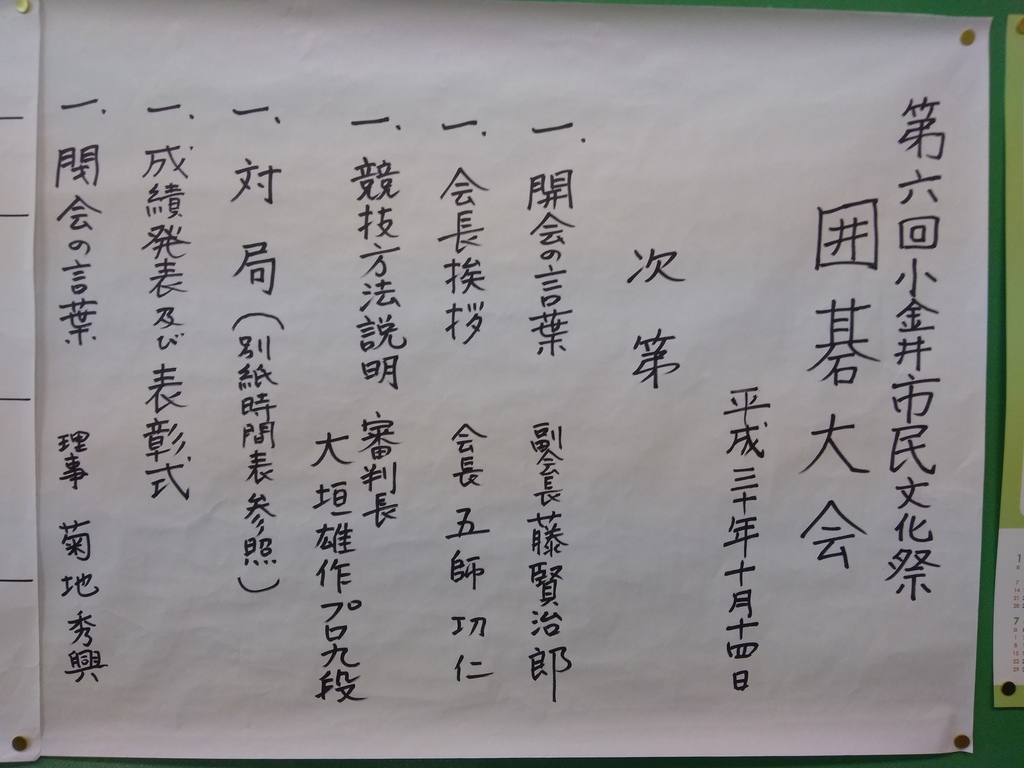 第六回小金井市民文化祭
囲碁大会
平成三十年十月十四日
次第
一.開会の言葉 副会長 藤賢治郎
一.会長挨拶 会長 五師功仁
一.競技方法説明 審判長
大垣雄作プロ九段
一.対局(別紙時間表参照)
一.成績発表及び表彰式
一.閉会の言葉 理事 菊地秀興